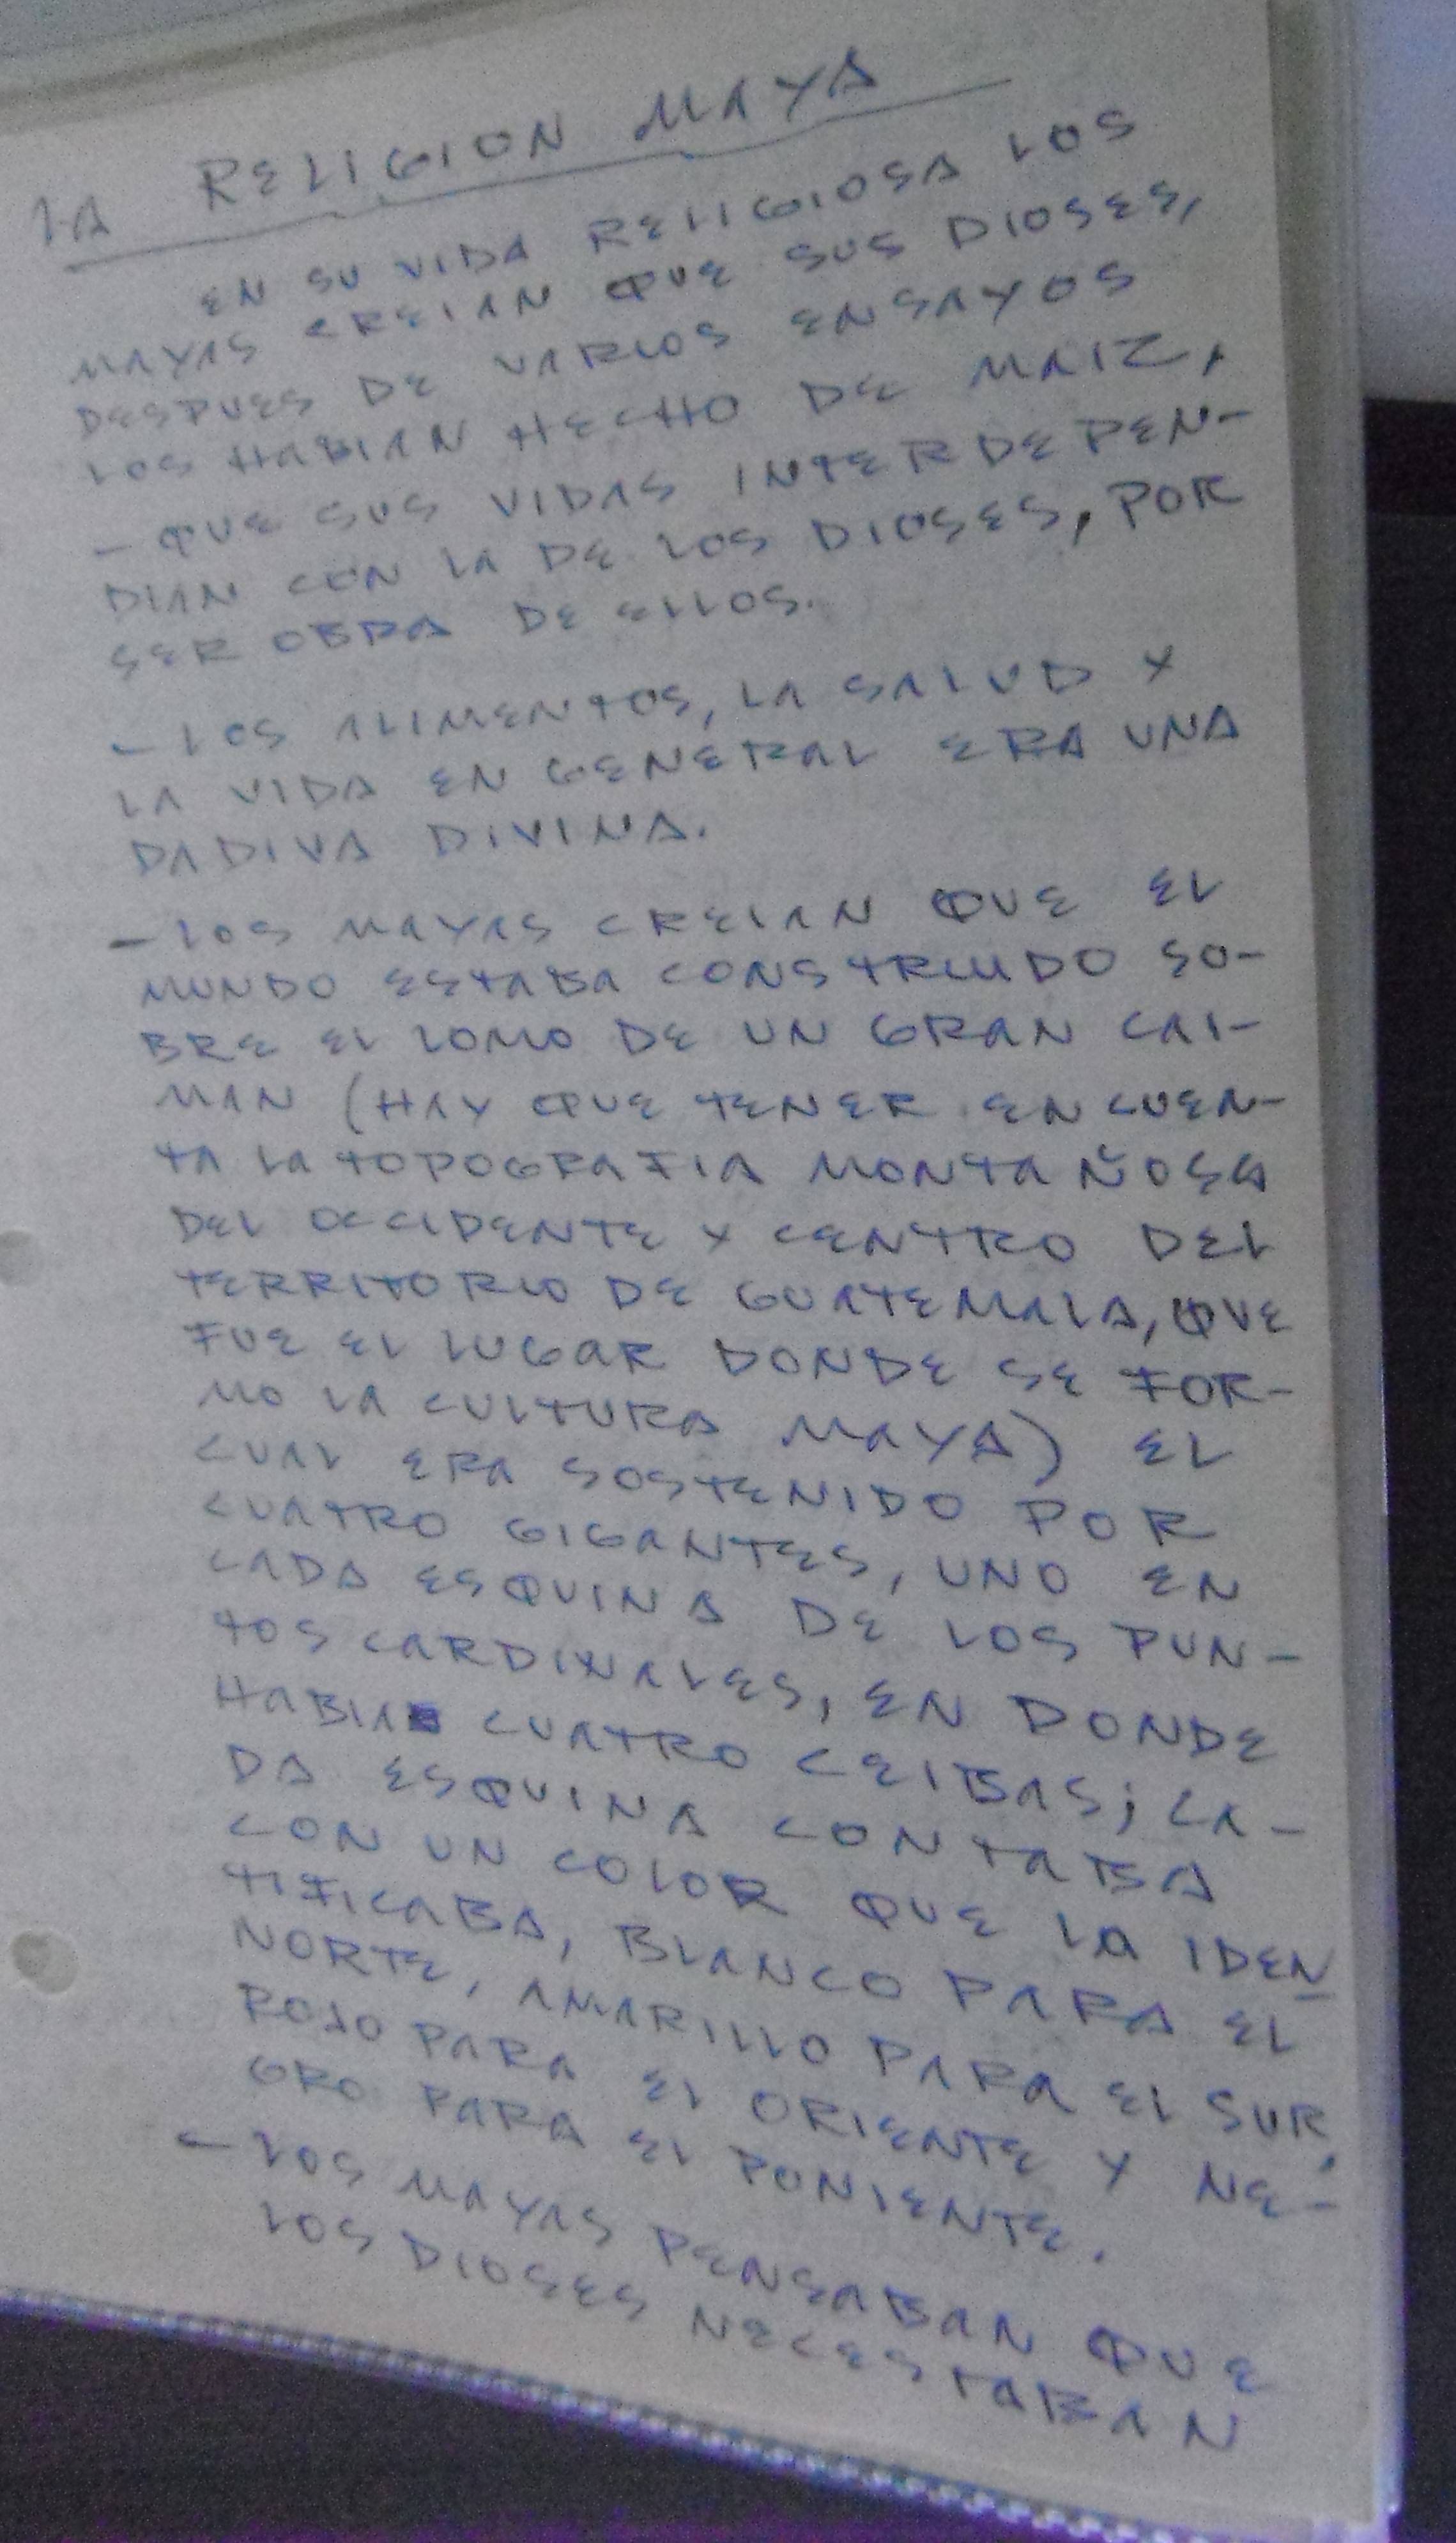 LA RELIGION MAYA
EN SU VIDA RELIGIOSA LOS
MAYAS CREIAN QUE SUS DIOSES,
DESPUES DE VARIOS ENSAYOS
LOS HABIAN HECHO DE MAIZ,
- QUE SUS VIDAS INTERDEPEN-
DIAN CON LA DE LOS DIOSES, POR
SER OBRA DE ELLOS.
- LOS ALIMENTOS, LA SALUD Y
LA VIDA EN GENERAL ERA UNA
DADIVA DIVINA.
- LOS MAYAS CREIAN QUE EL
MUNDO ESTABA CONSTRUIDO SO-
BRE EL LOMO DE UN GRAN CAI-
MAN (HAY QUE TENER EN CUEN-
TA LA TOPOGRAFIA MONTAÑOSA
DEL OCCIDENTE Y CENTRO DEL
TERRITORIO DE GUATEMALA, QUE
FUE EL LUGAR DONDE SE FOR-
MO LA CULTURA MAYA) EL
CUAL ERA SOSTENIDO POR
CUATRO GIGANTES, UNO EN
CADA ESQUINA DE LOS PUN-
TOS CARDINALES, EN DONDE
HABIA CUATRO CEIBAS; CA-
DA ESQUINA CONTABA
CON UN COLOR QUE LA IDEN
TIFICABA, BLANCO PARA EL
NORTE, AMARILLO PARA EL SUR,
ROJO PARA EL ORIENTE Y NE-
GRO PARA EL PONIENTE.
- LOS MAYAS PENSABAN QUE
LOS DIOSES NECESTABAN